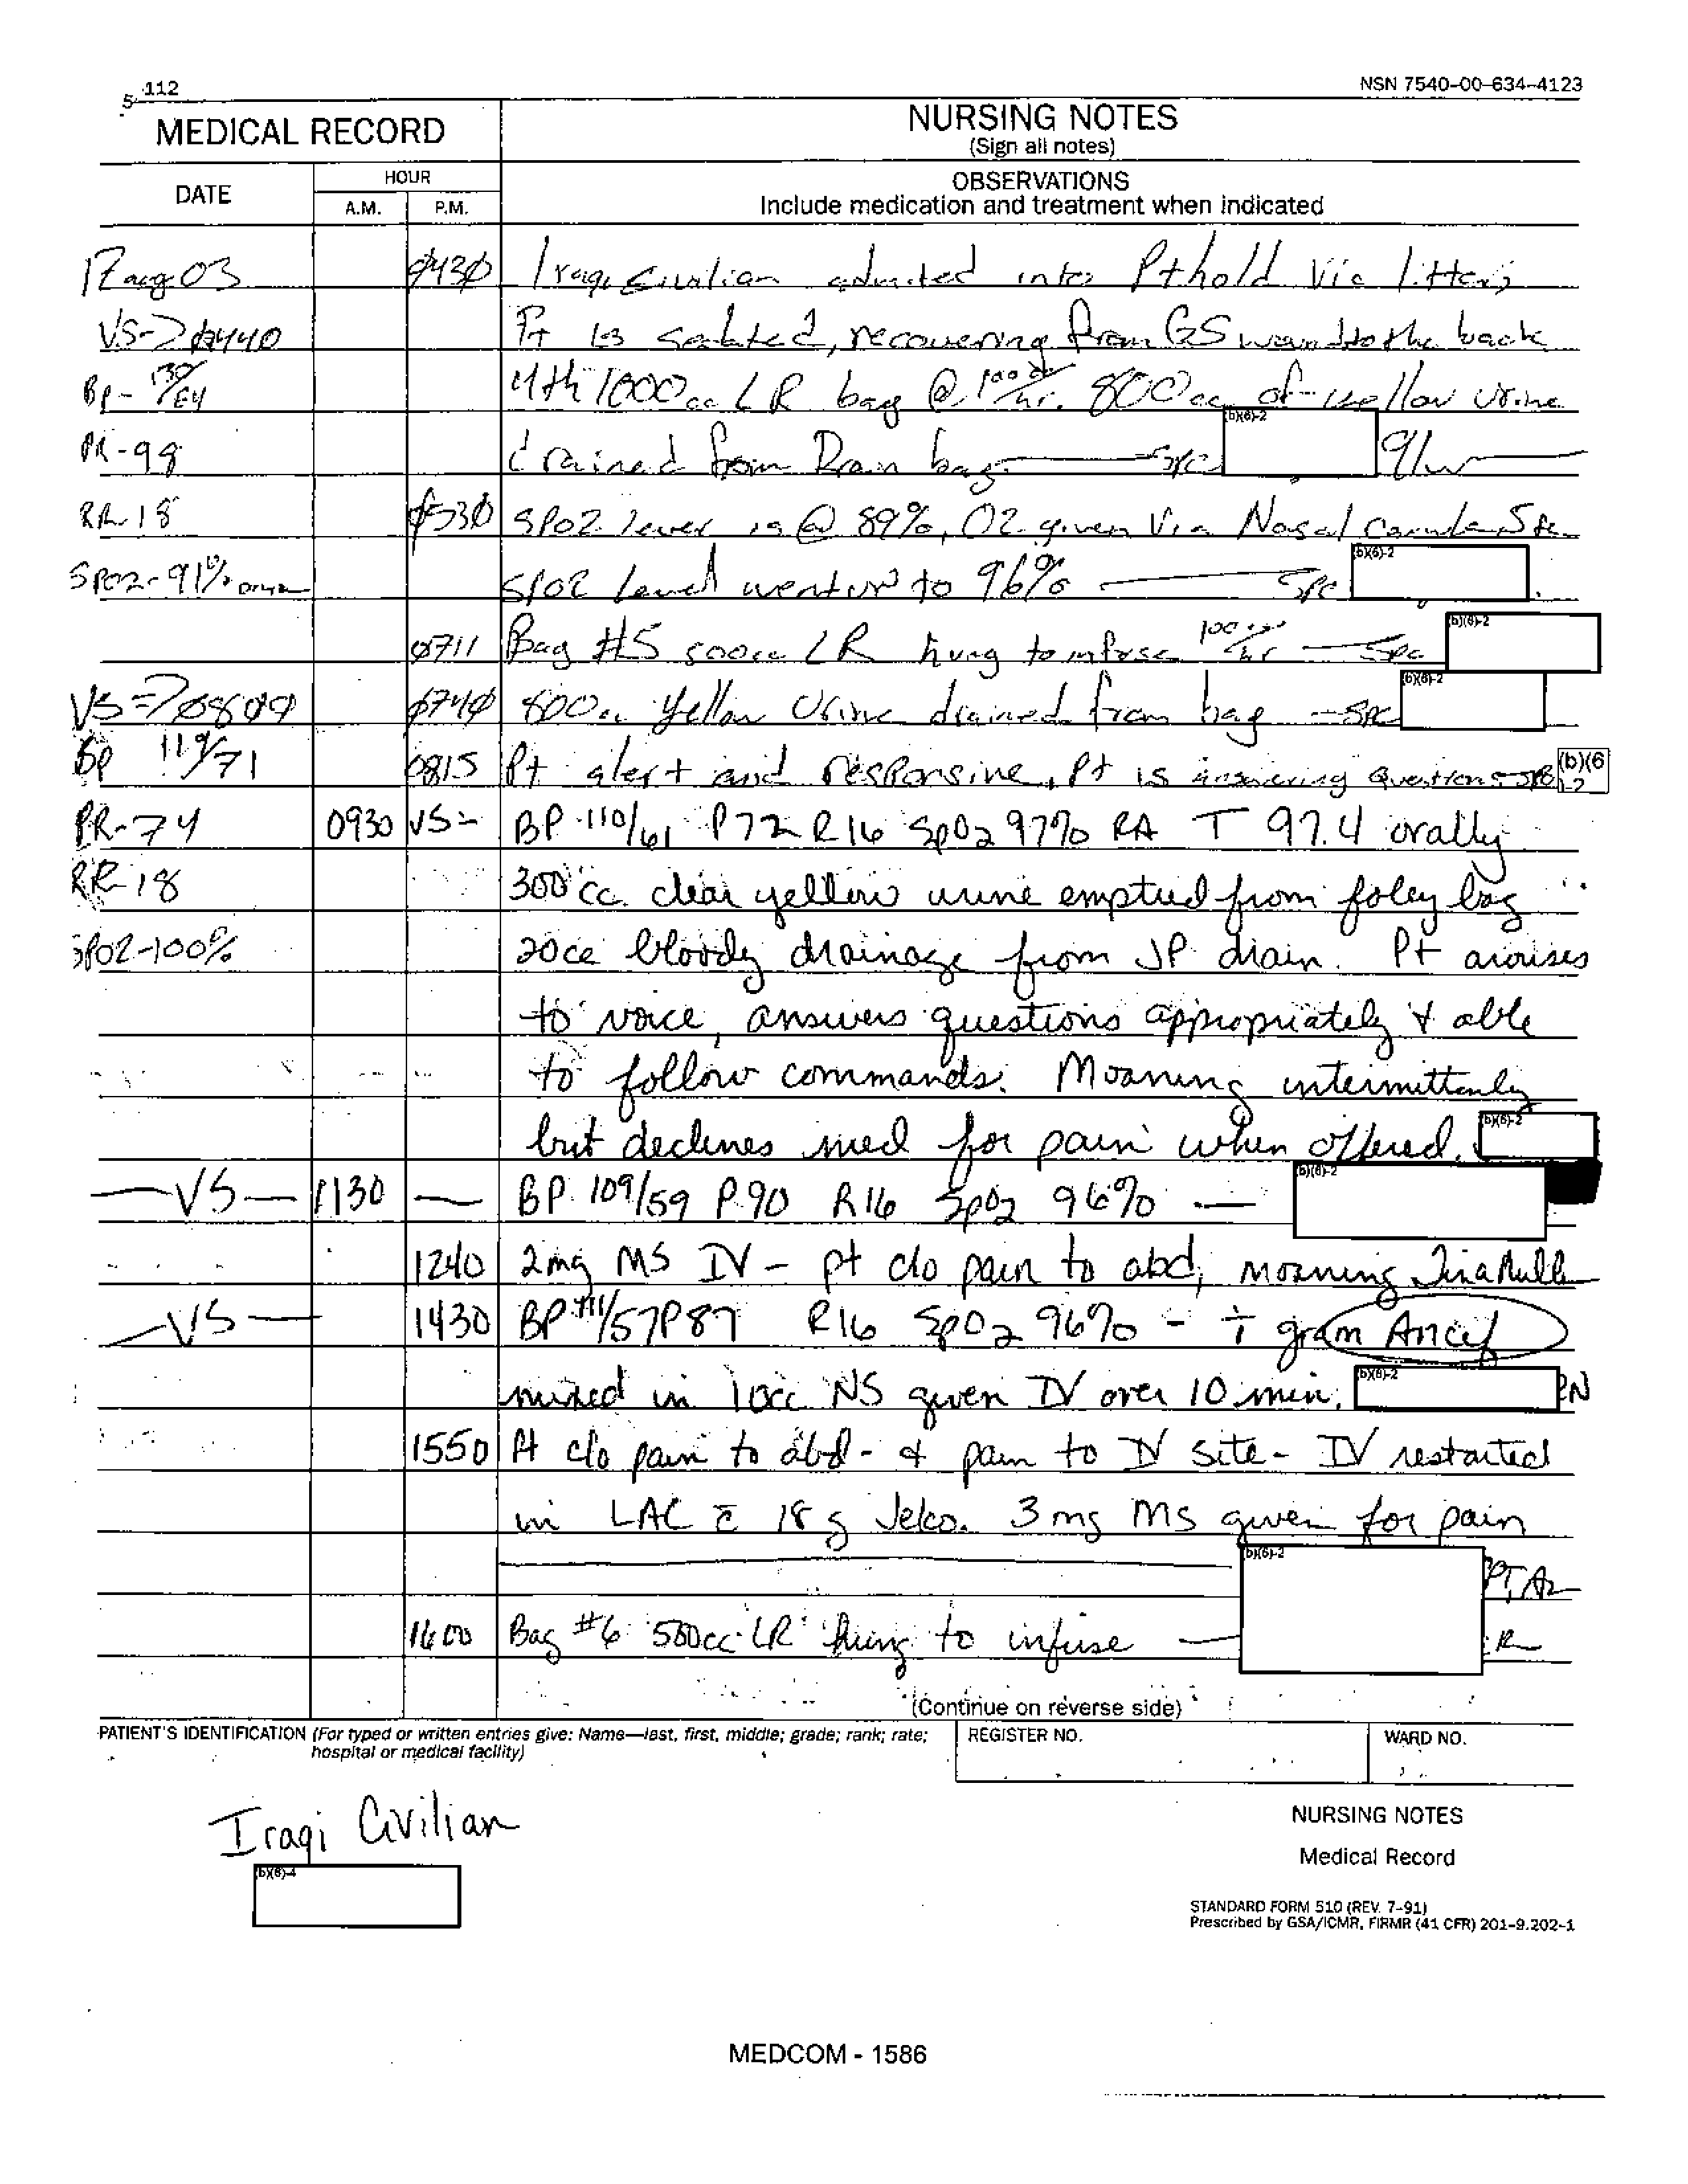 5 112
NSN 7540-00-634-4123
MEDICAL RECORD
NURSING NOTES
(Sign all notes)
DATE
HOUR
A.M.
P.M.
OBSERVATIONS
Include medication and treatment when indicated
17 aug 03 0430 Iraqi Civilian admitted into Pt hold Via litter,
VS-> 0440 Pt is sedated, recovering from GS wound to the back
BP - 130/64 4th 1000cc LR bag @ 100cc/hr. 800cc of yellow urine
PR - 98 drained from Drain bag SPC (b)(6)-2 91w
RR 18 0530 SPO2 level is @ 89%, O2 given Via Nasal Canula,
SPO2 - 91% SPO2 level went up to 96% SPC (b)(6)-2
0711 Bag #5 500cc LR hung to infuse 100cc/hr SPC (b)(6)-2
VS => 0800 0740 800cc yellow Urine drained from bag - SPC (b)(6)-2
BP 119/71 0815 Pt alert and responsive, Pt is answering questions (b)(6)-2
PR - 74 0930 VS - BP 110/61 P72 R16 SpO2 97% RA T 97.4 orally
RR 18 300 cc clear yellow urine emptied from foley bag
SPO2 - 100% 20cc bloody drainage from JP drain. Pt arouses
to voice, answers questions appropriately & able
to follow commands. Moaning intermittently
but declines med for pain when offered. (b)(6)-2
VS 1130 BP 109/59 P 90 R16 SpO2 96% (b)(6)-2
1240 2mg MS IV - pt c/o pain to abd, moaning
VS 1430 BP 111/57 P87 R16 SpO2 96% - i gram Ancef
mixed in 10cc NS given IV over 10 min. (b)(6)-2 RN
1550 Pt c/o pain to abd - & pain to IV site - IV restarted
in LAC c̄ 18 g Jelco. 3 mg MS given for pain
(b)(6)-2
1600 Bag #6 500cc LR hung to infuse
(Continue on reverse side)
PATIENT'S IDENTIFICATION (For typed or written entries give: Name—last, first, middle; grade; rank; rate; hospital or medical facility)
REGISTER NO.
WARD NO.
Iraqi Civilian
(b)(6)-4
NURSING NOTES
Medical Record
STANDARD FORM 510 (REV. 7-91)
Prescribed by GSA/ICMR, FIRMR (41 CFR) 201-9.202-1
MEDCOM - 1586